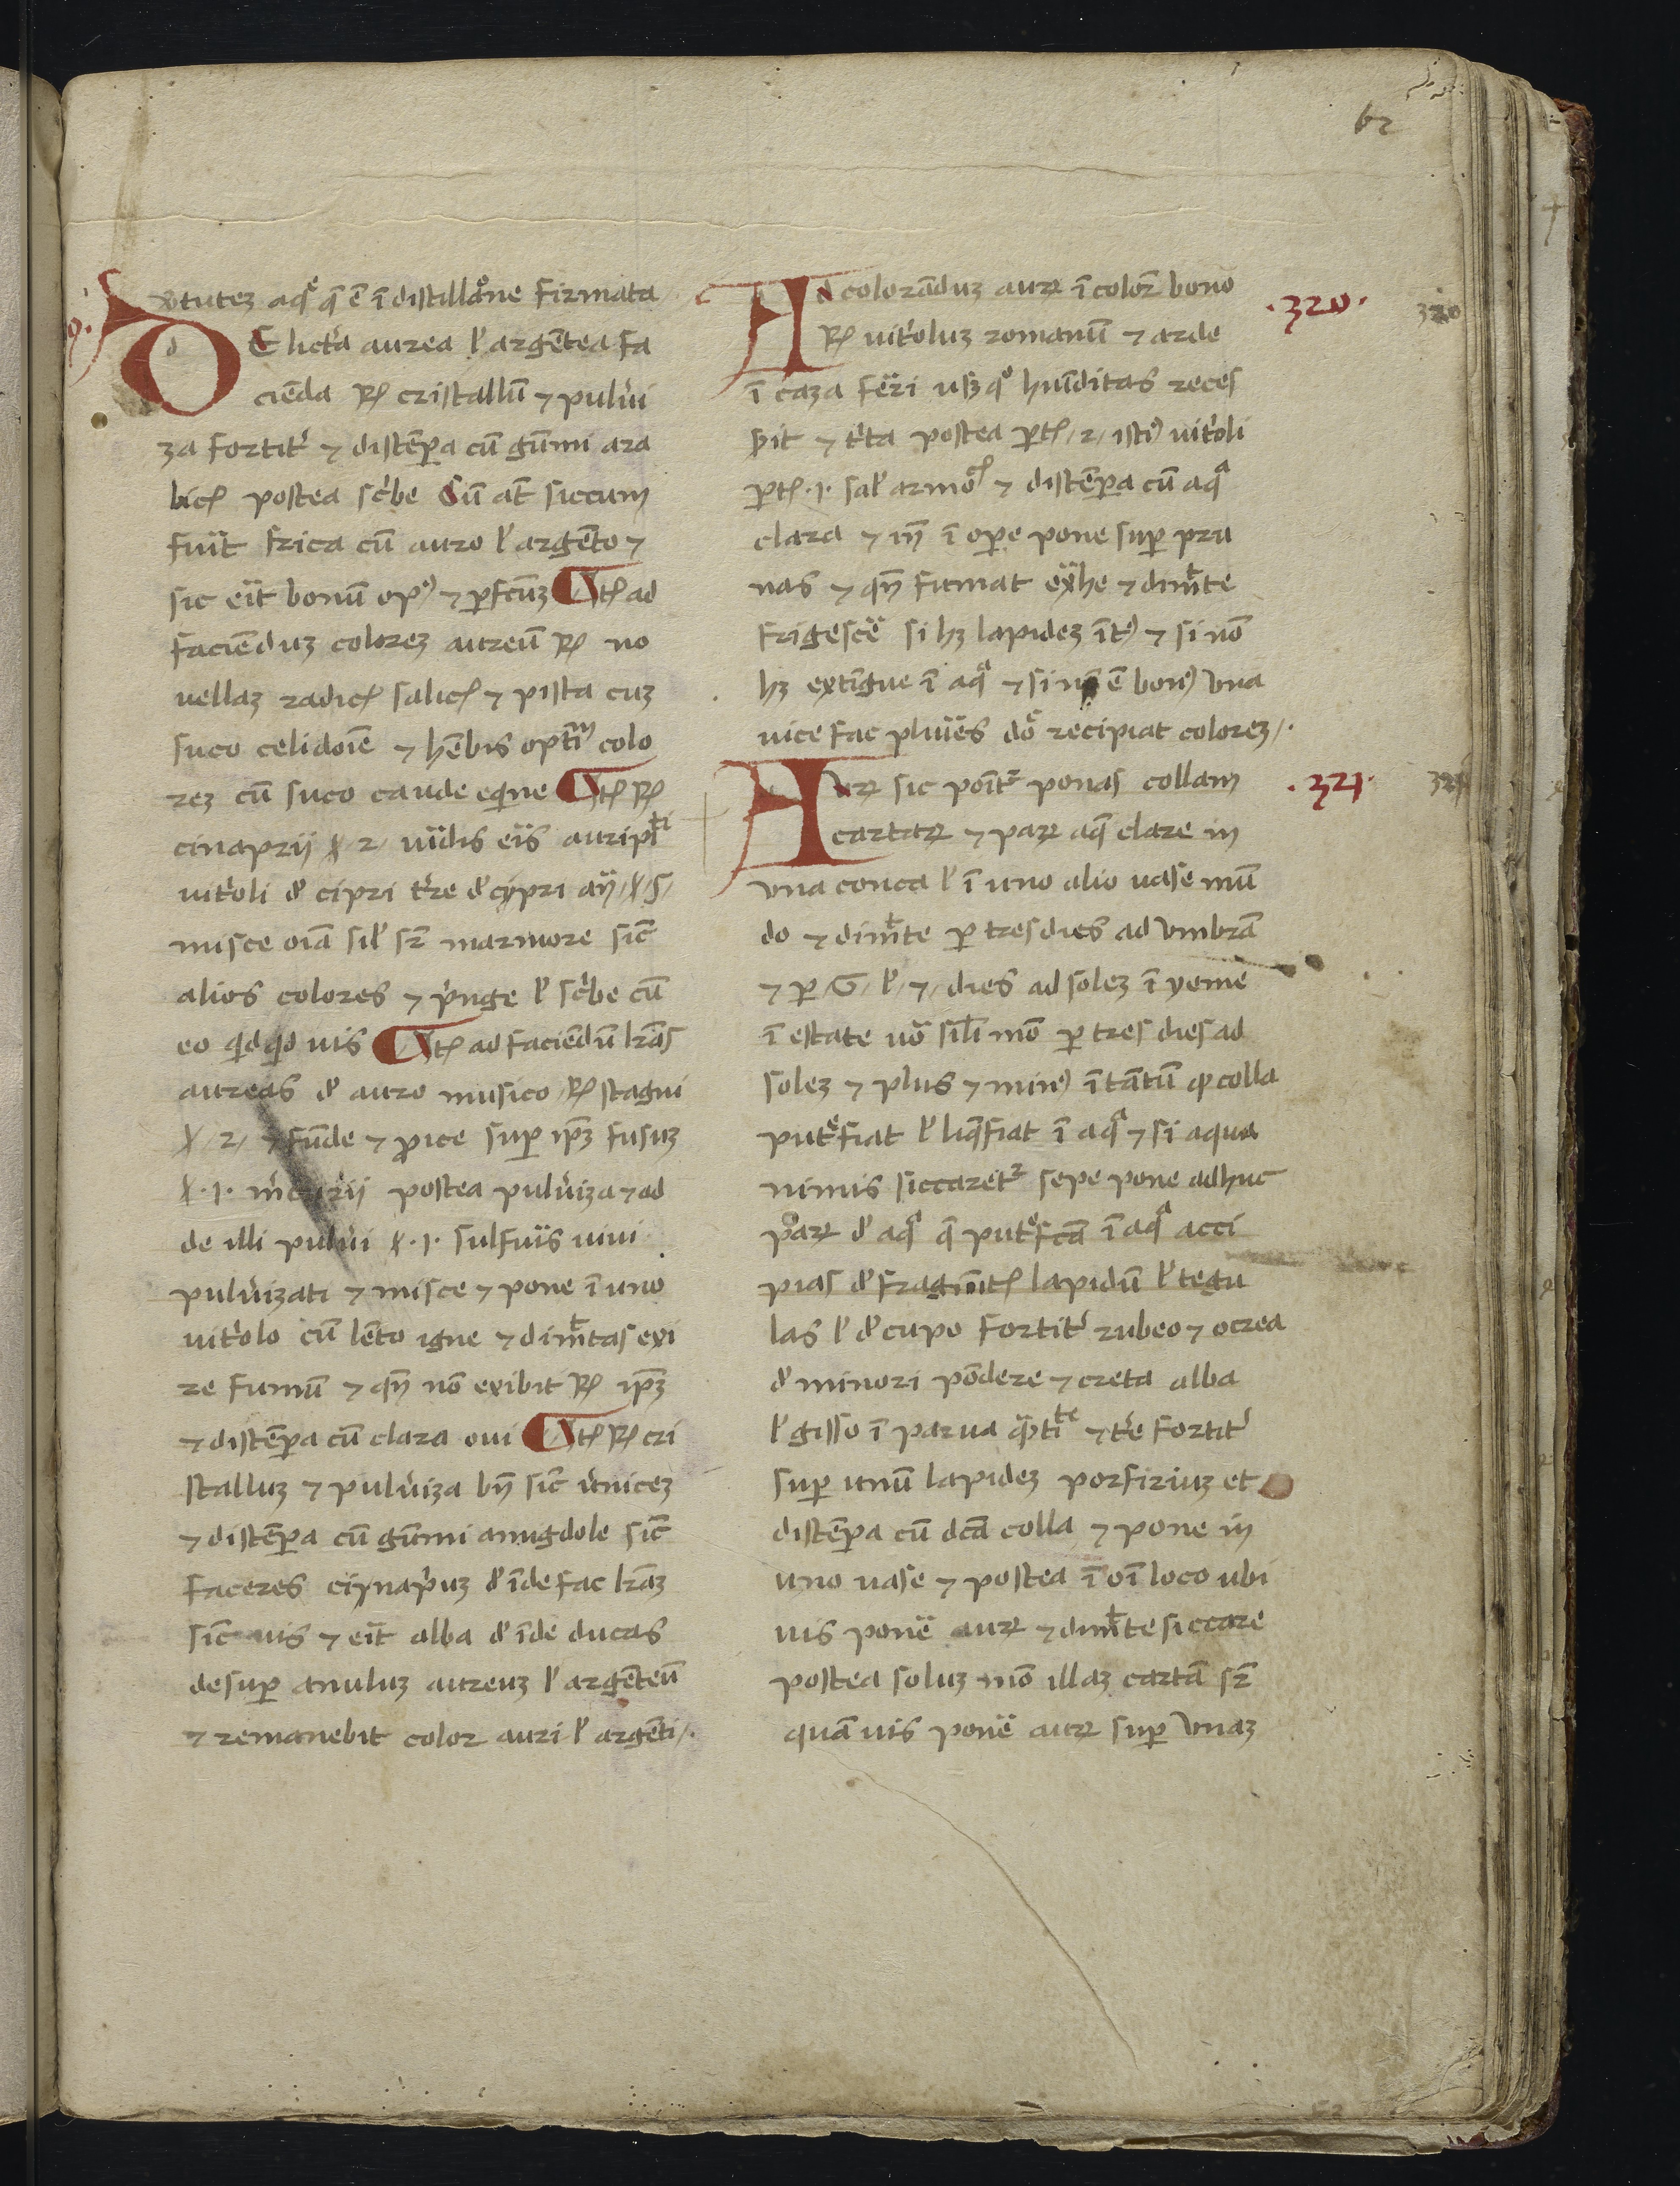 62
v̓tutez aqͣ q̄ ē ī distillōne firmata
DE lict'a aurea l' argētea fa
ciēda ℞ cristallū ⁊ pulu'i
za fortit' ⁊ distēꝑa cū gūmi ara
bicꝭ postea sc'be Cū at̄ siccum
fuīt frica cū auro l' argēto ⁊
sic eīt bonū opꝰ ⁊ ꝑfcūz Itꝭ ad
faciēduz colorez aureū ℞ no
vellaz radicꝭ salicꝭ ⁊ pista cuz
suco celidoīe ⁊ hēbis optīm colo
rez cū suco caude eqine Itꝭ ℞
cinaprij ℥ 2 / auripᵗⁱ
uit'oli d' cipri t're d' cypri an̄ / ℥ / 5 /
misce oīa sil' sr̄ marmore sic̄
alios colores ⁊ p'nge l' sc'be cū
eo qidqid uis Itꝭ ad faciēdū lr̄as
aureas d' auro musico / ℞ stagni
℥ / 2 / ⁊ fūde ⁊ ꝓice suꝑ ip̄z fusuz
℥ · 1 · m̓curij postea pulu'iza ⁊ ad
de illi pulu'i ℥ · 1 · sulfuīs uiui
pulu'izati ⁊ misce ⁊ pone ī uno
uit'olo cū lēto igne ⁊ dimᵗtas exi
re fumū ⁊ qn̄ nō exibit ℞ ip̄z
⁊ distēꝑa cū clara oui Itꝭ ℞ cri
stalluz ⁊ pulu'iza bn̄ sic̄ v'nicez
⁊ distēꝑa cū gūmi amigdole sic̄
faceres cynap'uz d' īde fac lr̄az
sic̄ uis ⁊ eīt alba d' īde ducas
desuꝑ anuluz aureuz l' argēteū
⁊ remanebit color auri l' argēti / .
Ad colorāduz auꝝ ī coloꝛ bono
℞ uit'oluz romanū ⁊ arde
ī caza fēri usqꝫ huīditas reces
sit ⁊ t'ta postea ꝑtꝭ / 2 / istiꝰ uit'oli
ꝑtꝭ · 1 · sal' armoᶜ ⁊ distēꝑa cū aqͣ
clara ⁊ ī oꝑe pone suꝑ pru
nas ⁊ qn̄ fumat ex̄he ⁊ dimᵗte
frigescē si hꝫ lapidez ītꝰ ⁊ si nō
hꝫ extīgue ī aqͣ ⁊ si nō ē bonꝰ vna
vice fac pluīes dō recipiat colorez / .
· 320 ·
320
Auꝝ sic poīt' ponas collam
cartaꝝ ⁊ paꝝ aq̄ clare in
vna conca l' ī uno alio uase mū
do ⁊ dimᵗte ꝑ tres dies ad vmbrā
⁊ ꝑ / 6 / l' / 7 / dies ad solez ī yeme
ī estate uō sili mō ꝑ tres dies ad
solez ⁊ plus ⁊ minꝰ ītātū ꝙ colla
put'fiat l' liq̄fiat ī aqͣ ⁊ si aqua
nimis siccaret' sepe pone adhuc
paꝝ d' aqͣ q̄ put'fcā ī aqͣ acci
pias d' fragmītꝭ lapidū l' tegu
las l' d' cupo fortit' rubeo ⁊ ocrea
d' minori pōdere ⁊ creta alba
l' gisso ī parua qᵃtiᵗᵉ ⁊ t're fortit'
suꝑ unū lapidez porfiriuz et
distēꝑa cū dc̄a colla ⁊ pone in
uno uase ⁊ postea ī oī loco ubi
uis ponē auꝝ ⁊ dimᵗte siccare
postea soluz mō illaz cartā sr̄
quā uis ponē auꝝ suꝑ vnaz
· 321 ·
321